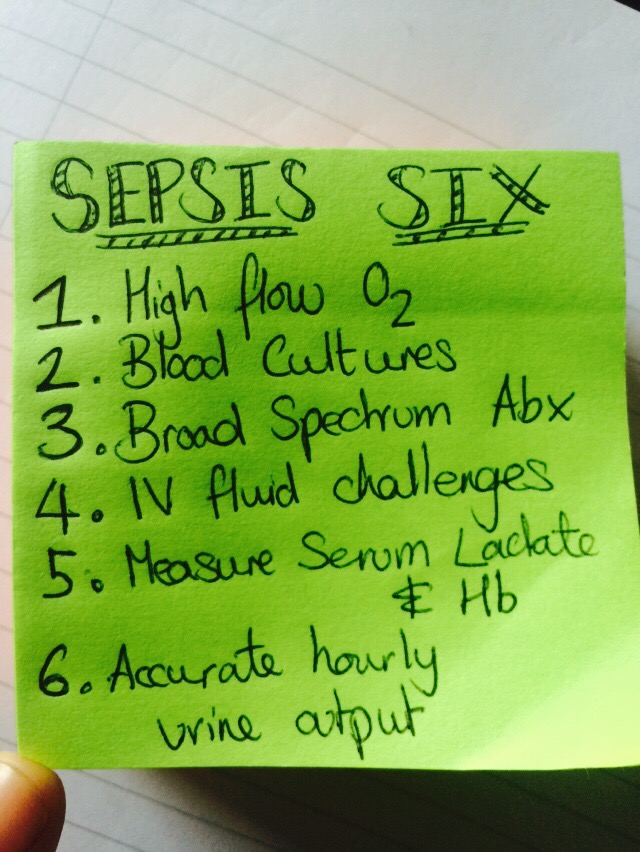 SEPSIS SIX
1. High flow O₂
2. Blood Cultures
3. Broad Spectrum Abx
4. IV fluid challenges
5. Measure Serum Lactate
& Hb
6. Accurate hourly
urine output